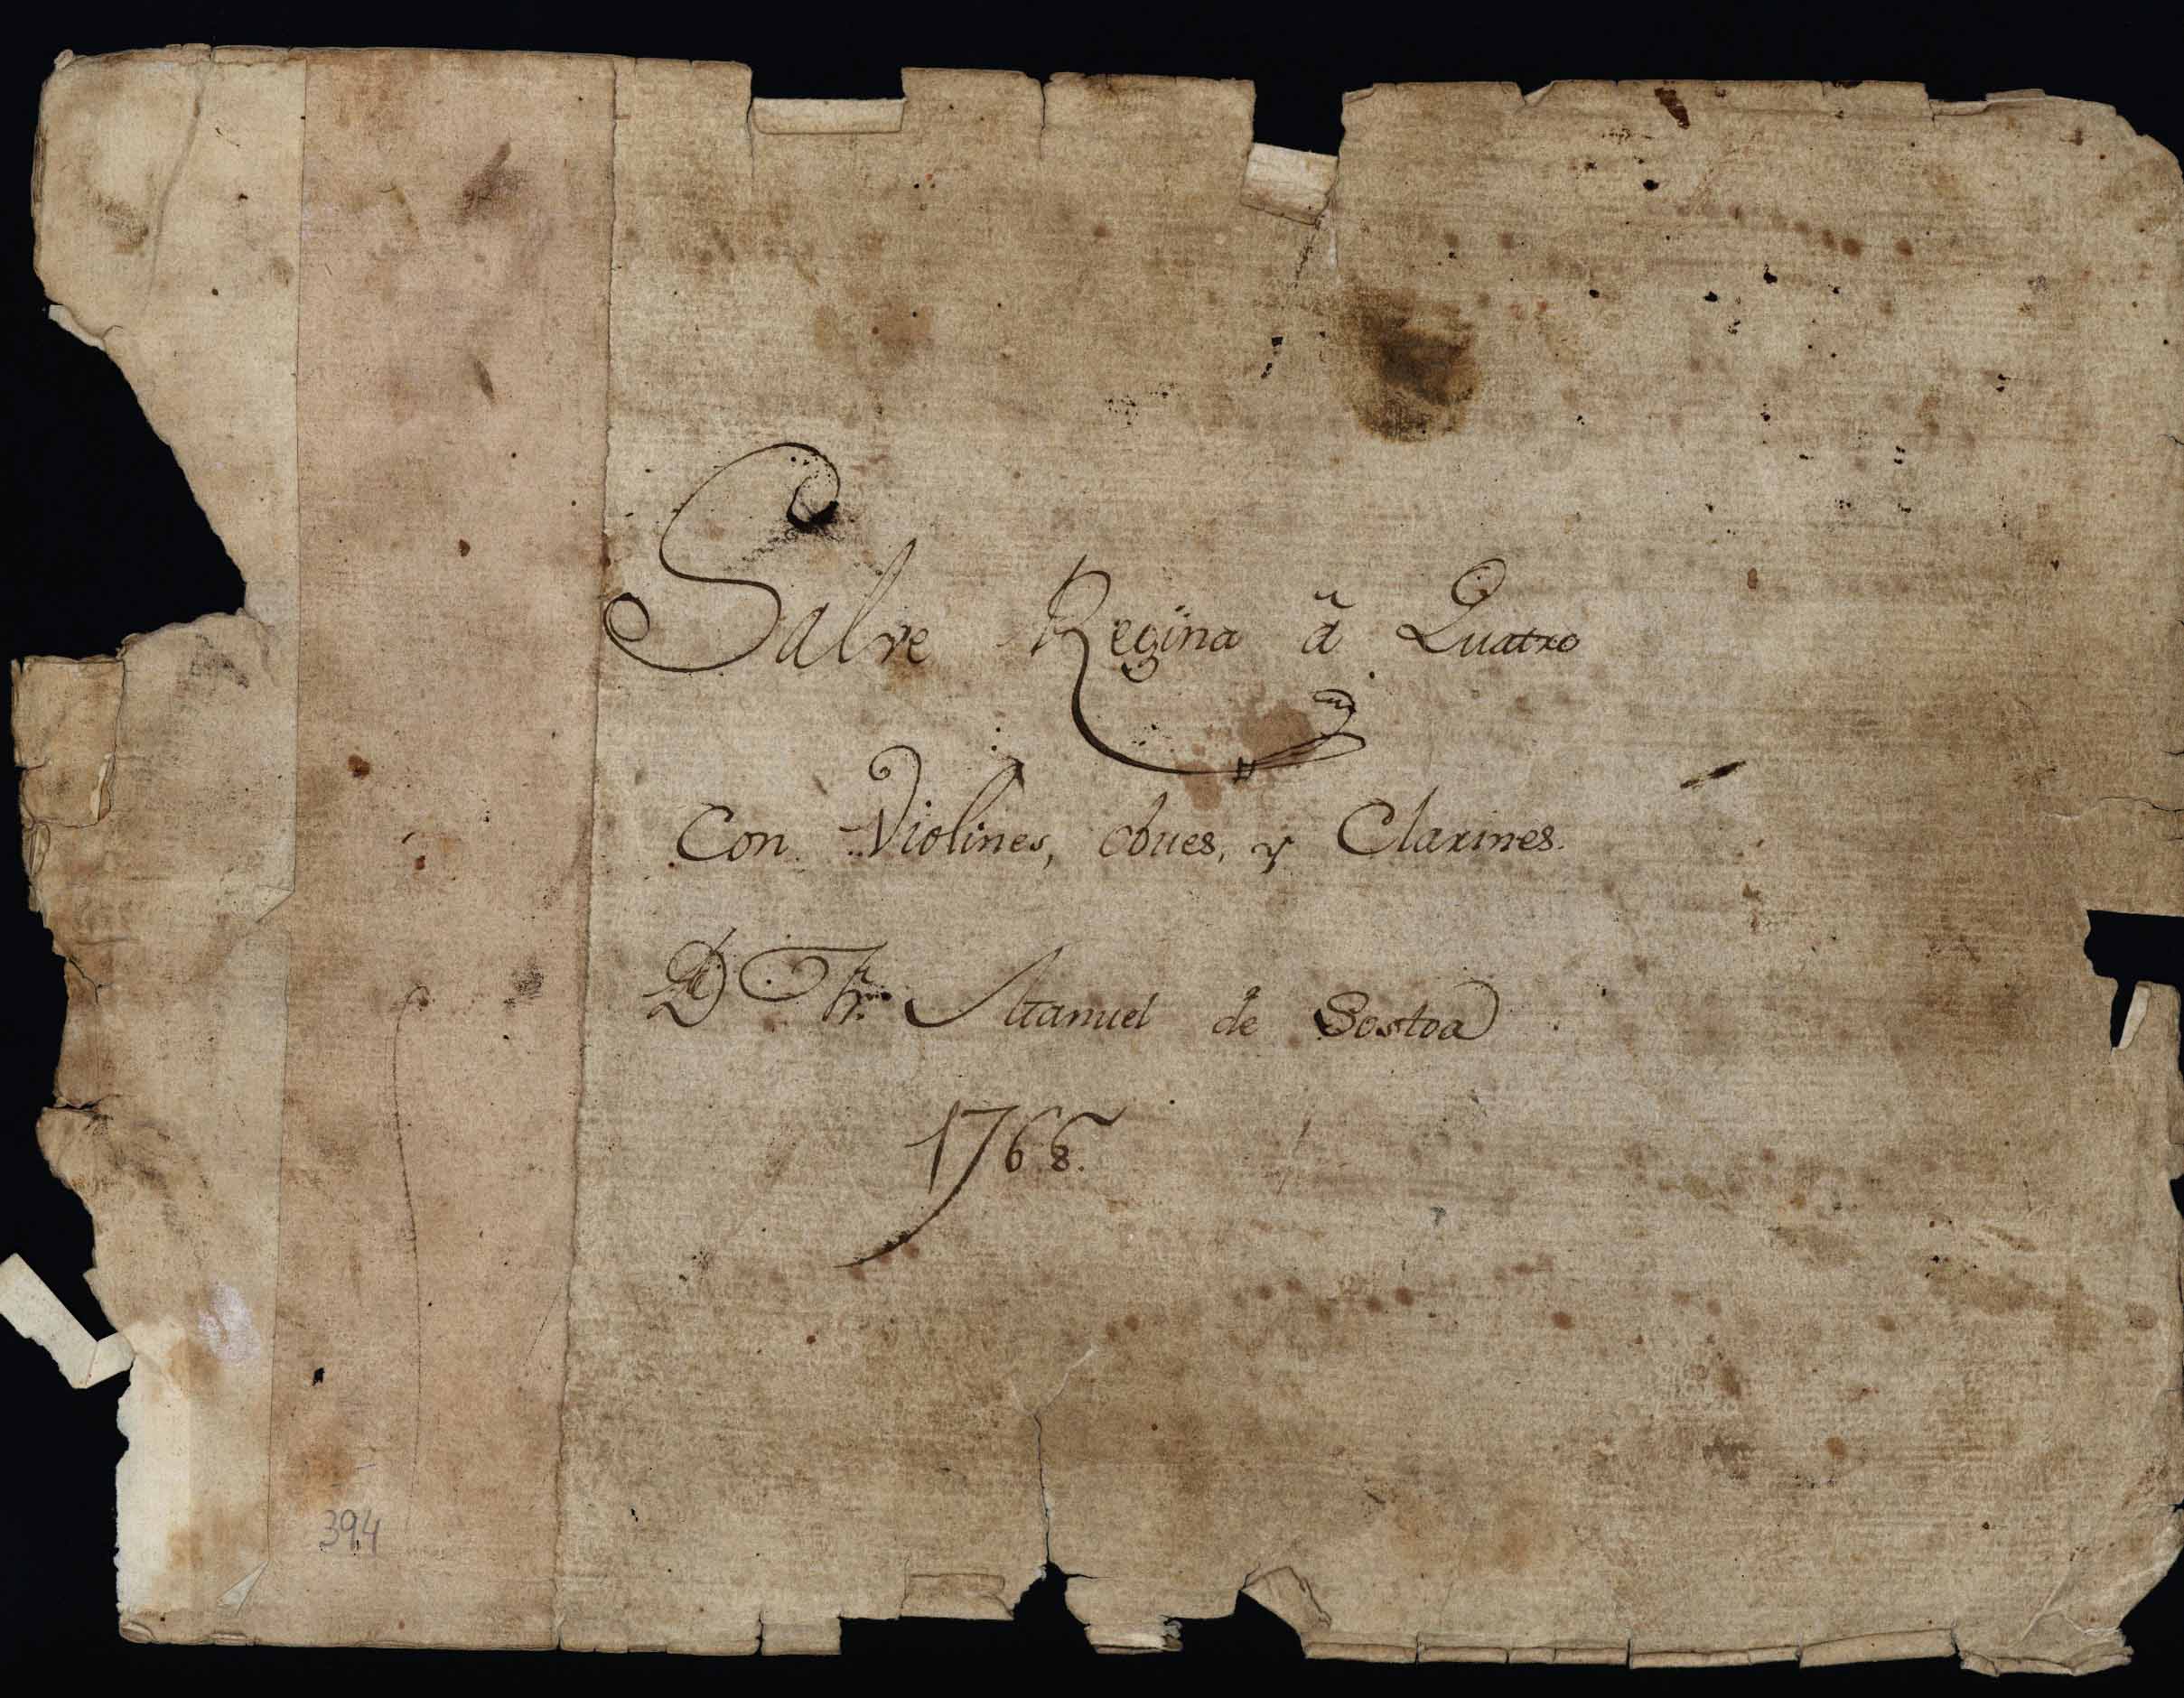 Salve Regina â Quatro
Con Violines, obues, y Clarines.
D Fr. Manuel de Sostoa
1768.
394